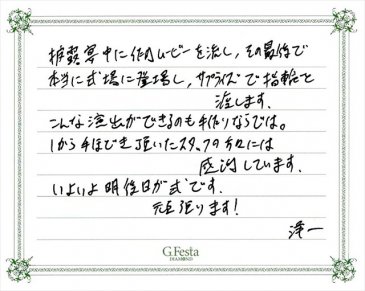 披露宴中に作ったムービーを流し、その最後で
本当に式場に登場し、サプライズで指輪を
渡します。
こんな演出ができるのも手作りならでは。
1から手ほどき頂いたスタッフの方々には
感謝しています。
いよいよ明後日が式です。
頑張ります!
洋一
G.Festa
DIAMOND